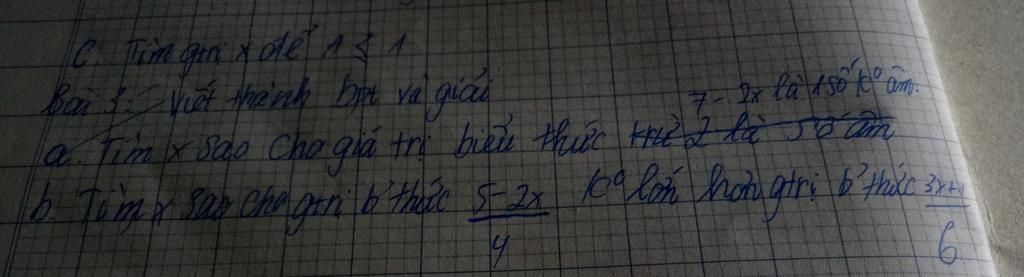 C. Tìm gtrị x để A ≤ 1
Bài 3: Viết thành bpt và giải
a. Tìm x sao cho giá trị biểu thức 7 - 2x là 1 số k° âm.
b. Tìm x sao cho gtrị b' thức 5-2x/4 k° lớn hơn gtrị b' thức 3x+1/6